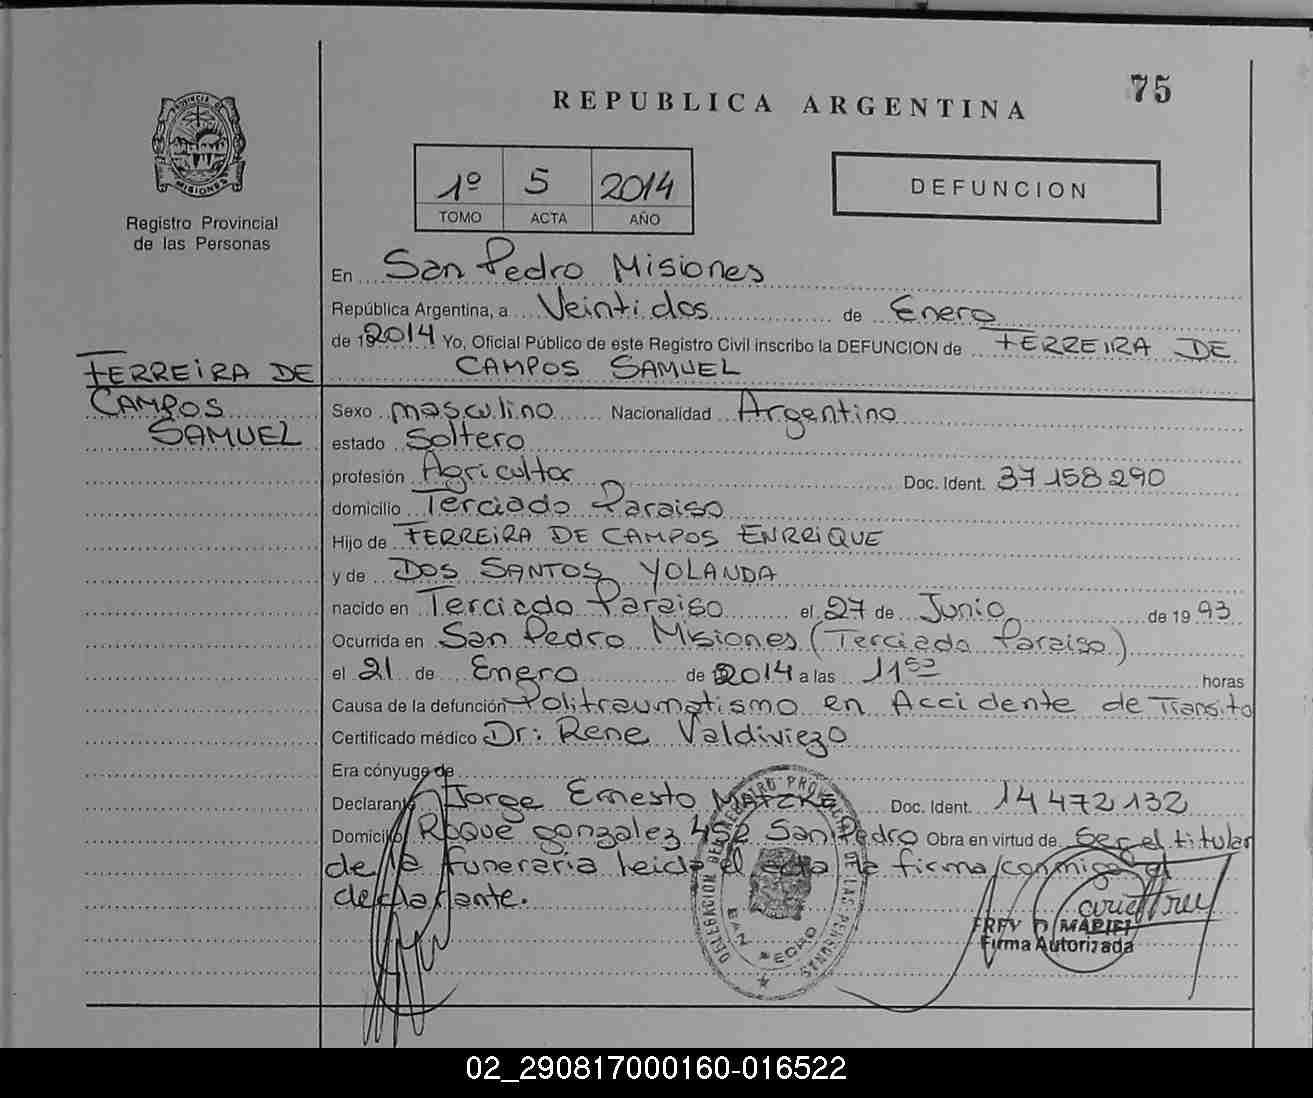 75
REPUBLICA ARGENTINA
PROVINCIA DE
MISIONES
Registro Provincial
de las Personas
1º 5 2014
TOMO ACTA AÑO
DEFUNCION
En San Pedro Misiones
República Argentina, a Veintidos de Enero
de 192014 Yo, Oficial Público de este Registro Civil inscribo la DEFUNCION de FERREIRA DE
CAMPOS SAMUEL
FERREIRA DE
CAMPOS
SAMUEL
Sexo masculino Nacionalidad Argentino
estado Soltero
profesión Agricultor Doc. Ident. 37158290
domicilio Terciado Paraiso
Hijo de FERREIRA DE CAMPOS ENRRIQUE
y de DOS SANTOS YOLANDA
nacido en Terciado Paraiso el 27 de Junio de 1993
Ocurrida en San Pedro Misiones (Terciado Paraiso)
el 21 de Enero de 2014 a las 11 horas
Causa de la defunción Politraumatismo en Accidente de Transito
Certificado médico Dr: Rene Valdiviezo
Era cónyuge de
Declarante Jorge Ernesto MATZKE Doc. Ident. 14472132
Domicilio Roque gonzalez 452 San Pedro Obra en virtud de Ser el titular
de la funeraria leida el acta la firma conmigo el
declarante.
DELEGACION DEL REGISTRO PROVINCIAL DE LAS PERSONAS
SAN PEDRO
FREY D MARIEL
Firma Autorizada
02_290817000160-016522